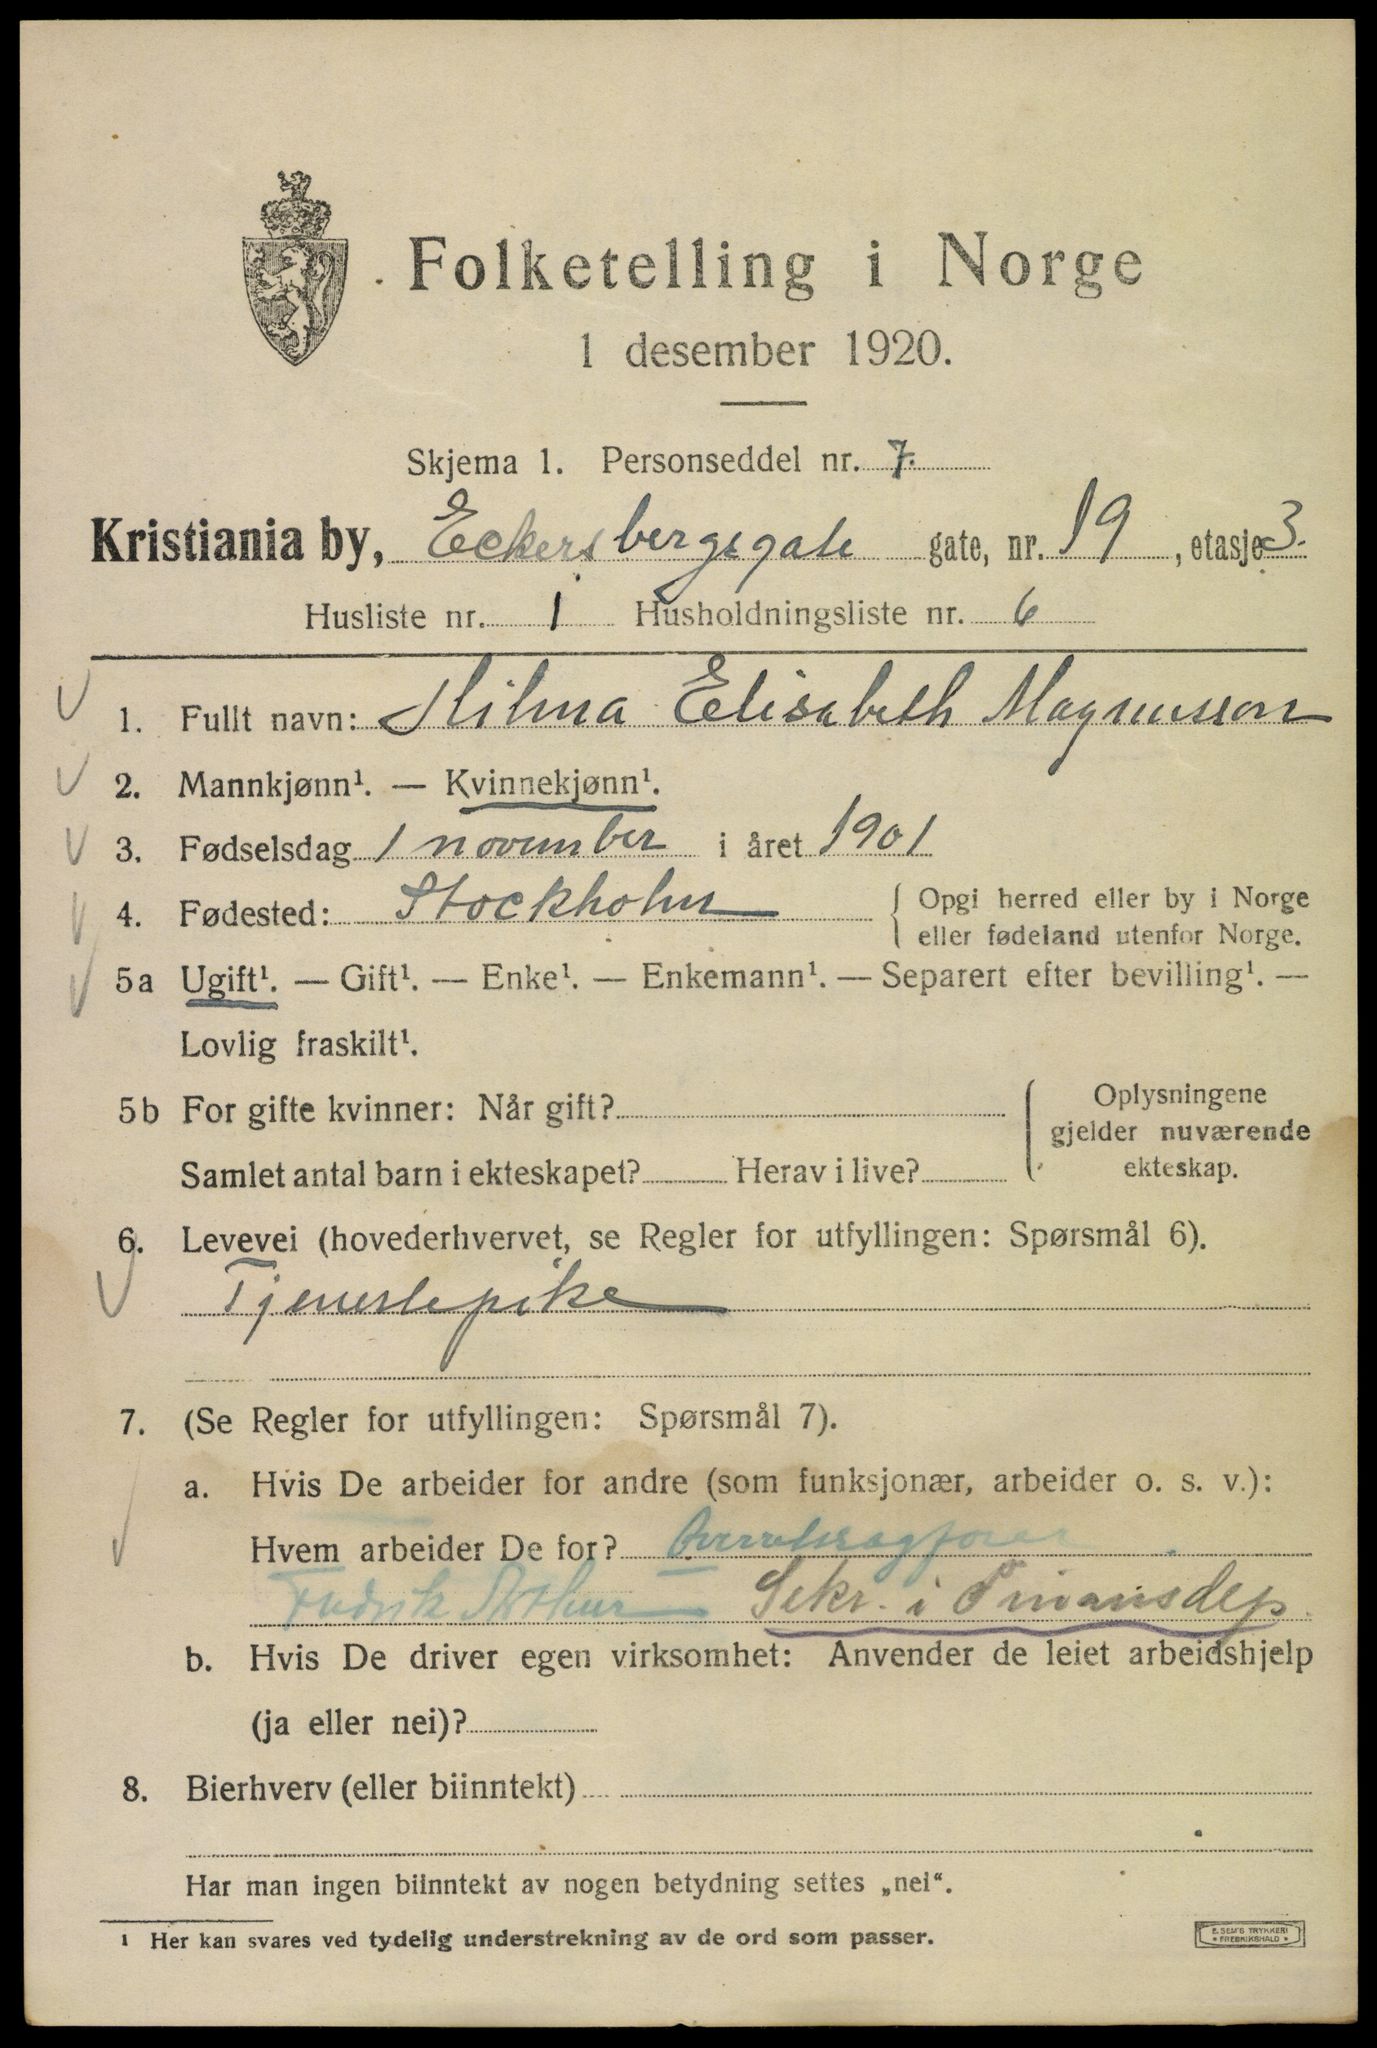 Folketelling i Norge
1 desember 1920.
Skjema 1. Personseddel nr. 7.
Kristiania by, Eckersbergsgate gate, nr. 19, etasje 3.
Husliste nr. 1 Husholdningsliste nr. 6
1. Fullt navn: Hilma Elisabeth Magnusson
2. Mannkjønn¹. — Kvinnekjønn¹.
3. Fødselsdag 1 november i året 1901
4. Fødested: Stockholm { Opgi herred eller by i Norge
eller fødeland utenfor Norge.
5a Ugift¹. — Gift¹. — Enke¹. — Enkemann¹. — Separert efter bevilling¹. —
Lovlig fraskilt¹.
5b For gifte kvinner: Når gift? { Oplysningene
gjelder nuværende
Samlet antal barn i ekteskapet? Herav i live? ekteskap.
6. Levevei (hovederhvervet, se Regler for utfyllingen: Spørsmål 6).
Tjenestepike
7. (Se Regler for utfyllingen: Spørsmål 7).
a. Hvis De arbeider for andre (som funksjonær, arbeider o. s. v.):
Hvem arbeider De for? Overretssagfører
Fredrik Arthur Sekr. i Finansdep.
b. Hvis De driver egen virksomhet: Anvender de leiet arbeidshjelp
(ja eller nei)?
8. Bierhverv (eller biinntekt)
Har man ingen biinntekt av nogen betydning settes „nei“.
¹ Her kan svares ved tydelig understrekning av de ord som passer.
E. SEM'S TRYKKERI
* FREDRIKSHALD *